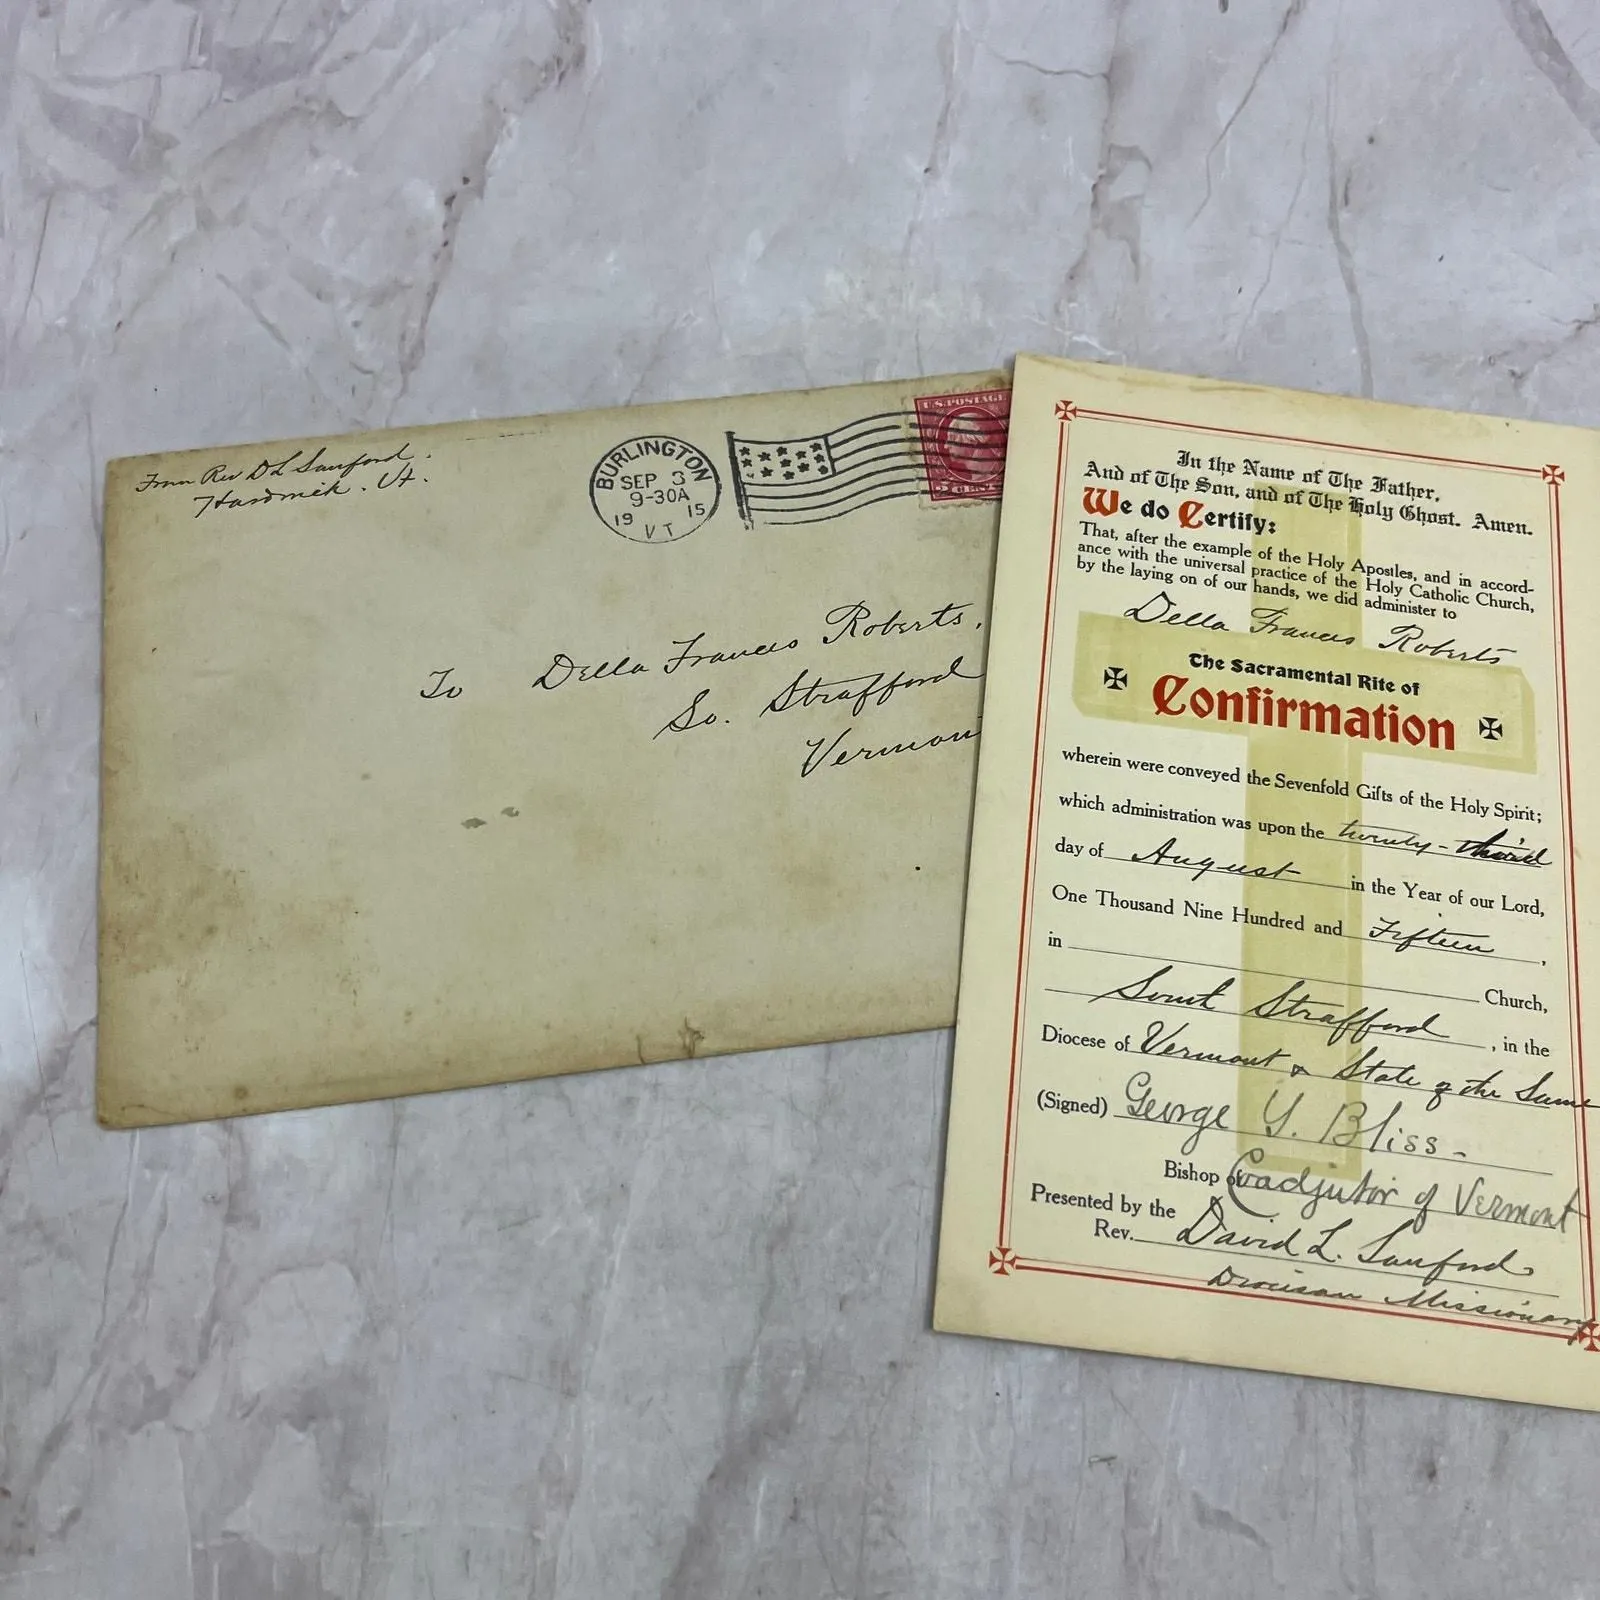 From Rev D L Sanford.
Hardwick. Vt.
BURLINGTON
SEP 3
9-30A
19 15
VT
U.S. POSTAGE
To Della Frances Roberts,
So. Strafford
Vermon
In the Name of The Father,
And of The Son, and of The Holy Ghost. Amen.
We do Certify:
That, after the example of the Holy Apostles, and in accord-
ance with the universal practice of the Holy Catholic Church,
by the laying on of our hands, we did administer to
Della Frances Roberts
The Sacramental Rite of
Confirmation
wherein were conveyed the Sevenfold Gifts of the Holy Spirit;
which administration was upon the twenty-third
day of August in the Year of our Lord,
One Thousand Nine Hundred and Fifteen,
in
Church,
South Strafford, in the
Diocese of Vermont & State of the Same
(Signed) George Y. Bliss -
Bishop of Coadjutor of Vermont
Presented by the
Rev. David L. Sanford
Diocesan Missionary